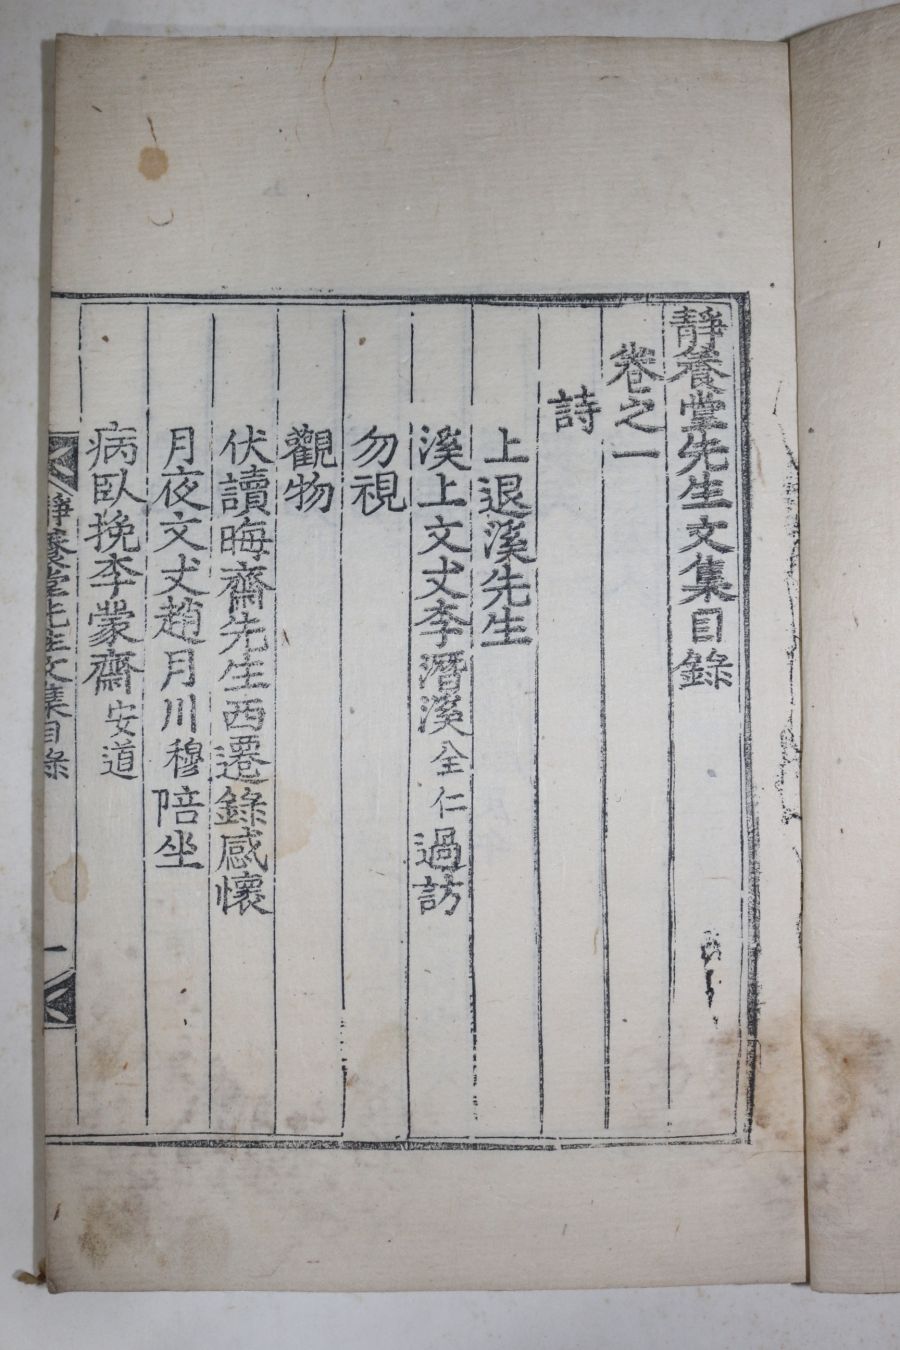 靜養堂先生文集目錄
卷之一
詩
上退溪先生
溪上文丈李潛溪全仁過訪
勿視
觀物
伏讀晦齋先生西遷錄感懷
月夜文丈趙月川穆陪坐
病臥挽李蒙齋安道
靜養堂先生文集目錄
一